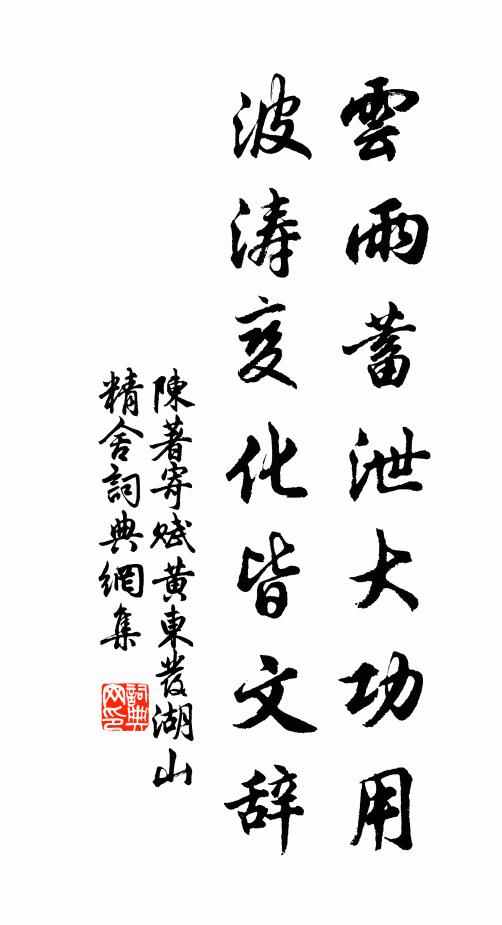 雲雨蓄泄大功用
波涛变化皆文辞
陳著寄賦黄東發湖山
精舍詞典網集
詞典
网印